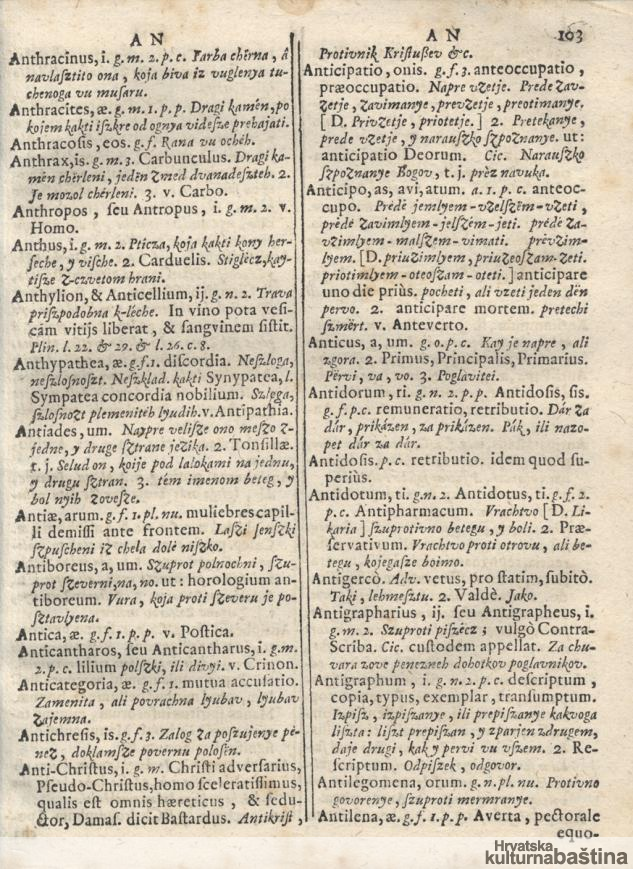 A N
Anthracinus, i. g. m. 2. p. c. Farba chêrna, â
navlasztito ona, koja biva iz vuglenya tu-
chenoga vu musaru.
Anthracites, æ. g. m. 1. p. p. Dragi kamèn, po
kojem kakti iszkre od ognya videsze prehajati.
Anthracosis, eos. g. f. Rana vu ochêh.
Anthrax, is. g. m. 3. Carbunculus. Dragi ka-
mèn chêrleni, jedèn zmed dvanadeszteh. 2.
Je mozol chêrleni. 3. v. Carbo.
Anthropos, ſeu Antropus, i. g. m. 2. v.
Homo.
Anthus, i. g. m. 2. Pticza, koja kakti kony her-
seche, y vische. 2. Carduelis. Stiglècz, kay-
tisze z-czvetom hrani.
Anthylion, & Anticellium, ij. g. n. 2. Trava
priszpodobna k-léche. In vino pota veſi-
cam vitijs liberat, & ſangvinem ſiſtit.
Plin. l. 22. & 29. & l. 26. c. 8.
Anthypathea, æ. g. f. 1. diſcordia. Neszloga,
neszlosnoszt. Neszklad. kakti Synypatea, l.
Sympatea concordia nobilium. Szlega,
szlosnozt plemenitéh lyudih. v. Antipathia.
Antiades, um. Naypre velisze ono meszo z-
jedne, y druge sztrane jezika. 2. Tonſillæ.
t. j. Selud on, koije pod lalokami na jednu,
y drugu sztran. 3. tém imenom beteg, y
bol nyih zovesze.
Antiæ, arum. g. f. 1. pl. nu. muliebres capil-
li demiſſi ante frontem. Laszi senszki
szpuscheni iz chela dolé niszko.
Antiboreus, a, um. Szuprot polnochni, szu-
prot szeverni, na, no. ut: horologium an-
tiboreum. Vura, koja proti szeveru je po-
sztavlyena.
Antica, æ. g. f. 1. p. p. v. Poſtica.
Anticantharos, ſeu Anticantharus, i. g. m.
2. p. c. lilium polszki, ili divyi. v. Crinon.
Anticategoria, æ. g. f. 1. mutua accuſatio.
Zamenita, ali povrachna lyubav, lyubav
zajemna.
Antichreſis, is. g. f. 3. Zalog za poszujenye pé-
nez, doklamsze povernu polosèn.
Anti-Chriſtus, i. g. m. Chriſti adverſarius,
Pſeudo-Chriſtus, homo ſceleratiſſimus,
qualis eſt omnis hæreticus, & ſedu-
ctor, Damaſ. dicit Baſtardus. Antikriſt,
A N 103
Protivnik Kriſtuſſev &c.
Anticipatio, onis. g. f. 3. anteoccupatio,
præoccupatio. Napre vzetje. Prede zav-
zetje, zavimanye, prevzetje, preotimanye.
[ D. Privzetje, priotetje. ] 2. Pretekanye,
prede vzetje, y narauszko szpoznanye. ut:
anticipatio Deorum. Cic. Narauszko
szpoznanye Bogov, t. j. prèz navuka.
Anticipo, as, avi, atum. a. 1. p. c. anteoc-
cupo. Prédé jemlyem-vzelszèm-vzeti,
prédé zavimlyem-jelszèm-jeti. prédé za-
vzimlyem-malszem-vimati. prèvzim-
lyem. [D. priuzimlyem, priuzeoszam-zeti.
priotimlyem-oteoszam-oteti. ] anticipare
uno die priùs. pocheti, ali vzeti jeden dèn
pervo. 2. anticipare mortem. pretechi
szmért. v. Anteverto.
Anticus, a, um. g. o. p. c. Kay je napre, ali
zgora. 2. Primus, Principalis, Primarius.
Pérvi, va, vo. 3. Poglavitei.
Antidorum, ri. g. n. 2. p. p. Antidoſis, ſis.
g. f. p. c. remuneratio, retributio. Dár za
dár, prikázen, za prikázen. Pák, ili nazo-
pet dár za dár.
Antidoſis. p. c. retributio. idem quod ſu-
periùs.
Antidotum, ti. g. n. 2. Antidotus, ti. g. f. 2.
p. c. Antipharmacum. Vrachtvo [ D. Li-
karia ] szuprotivno betegu, y boli. 2. Præ-
ſervativum. Vrachtvo proti otrovu, ali be-
tegu, kojegasze boimo.
Antigercò. Adv. vetus, pro ſtatim, ſubitò.
Taki, lehmesztu. 2. Valdè. Jako.
Antigrapharius, ij. ſeu Antigrapheus, i.
g. m. 2. Szuproti piszècz; vulgò Contra-
Scriba. Cic. cuſtodem appellat. Za chu-
vara zove penezneh dohotkov poglavnikov.
Antigraphum, i. g. n. 2. p. c. deſcriptum,
copia, typus, exemplar, tranſumptum.
Izpisz, izpiszanye, ili prepiszanye kakvoga
liszta: liszt prepiszan, y zparjen zdrugem,
daje drugi, kak y pervi vu vszem. 2. Re-
ſcriptum. Odpiszek, odgovor.
Antilegomena, orum. g. n. pl. nu. Protivno
govorenye, szuproti mermranye.
Antilena, æ. g. f. 1. p. p. Averta, pectorale
equo-
Hrvatska
kulturnabaština